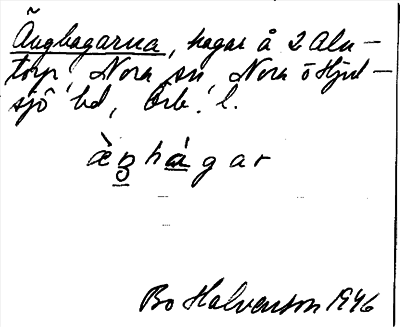 Änghagarna, hagar å 2 Alu-
torp, Nora sn, Nora o Hjul-
sjö bd, Örb. l.
àŋhágar
Bo Halvenson 1946